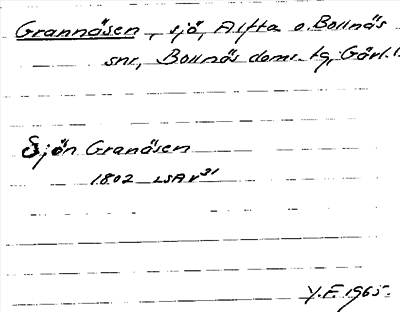 Grannåsen, sjö, Alfta o. Bollnäs
snr, Bollnäs doms. tg, Gävl. l.
Sjön Granåsen
1802 LSA v 31
Y.F. 1965.